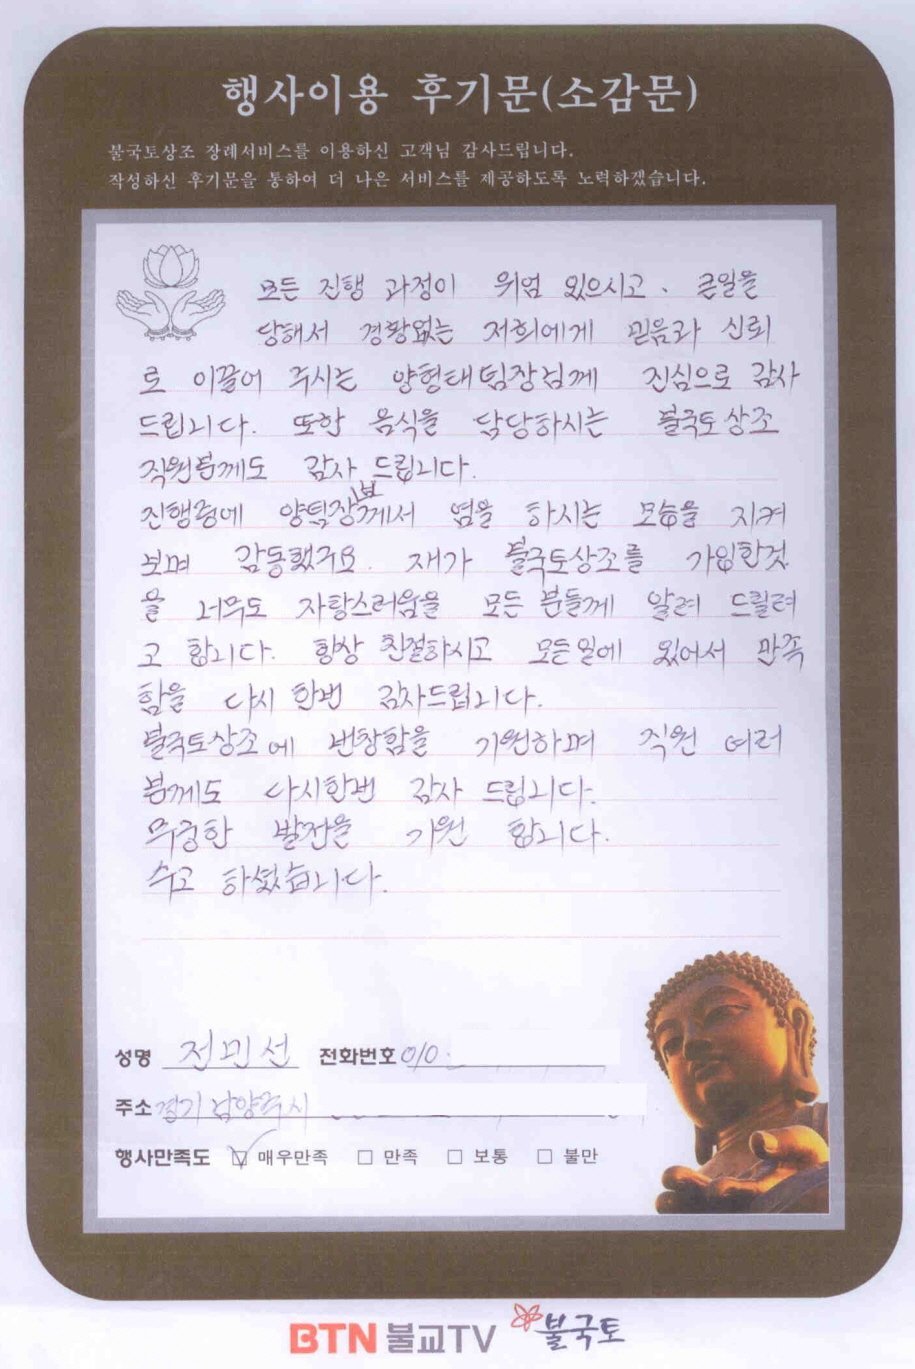 행사이용 후기문(소감문)
불국토상조 장례서비스를 이용하신 고객님 감사드립니다.
작성하신 후기문을 통하여 더 나은 서비스를 제공하도록 노력하겠습니다.
모든 진행 과정이 위엄 있으시고. 큰일을
당해서 경황없는 저희에게 믿음과 신뢰
로 이끌어 주시는 양형태팀장님께 진심으로 감사
드립니다. 또한 음식을 담당하시는 불국토상조
직원분께도 감사 드립니다.
진행중에 양팀장님께서 염을 하시는 모습을 지켜
보며 감동했구요. 재가 불국토상조를 가입한것
을 너무도 자랑스러움을 모든 분들께 알려 드릴려
고 합니다. 항상 친절하시고 모든일에 있어서 만족
함을 다시 한번 감사드립니다.
불국토상조에 번창함을 기원하며 직원 여러
분께도 다시한번 감사 드립니다.
무궁한 발전을 기원 합니다.
수고 하셨습니다.
성명 전민선 전화번호 010.
주소 경기 남양주시
행사만족도 ☑ 매우만족 □ 만족 □ 보통 □ 불만
BTN 불교TV 불국토